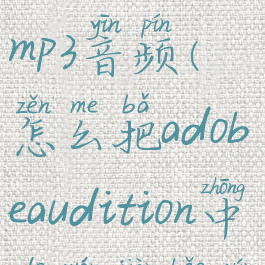 yīn pín
mp3音频(
zěn me bǎ
怎么把adob
zhōng
eaudition中